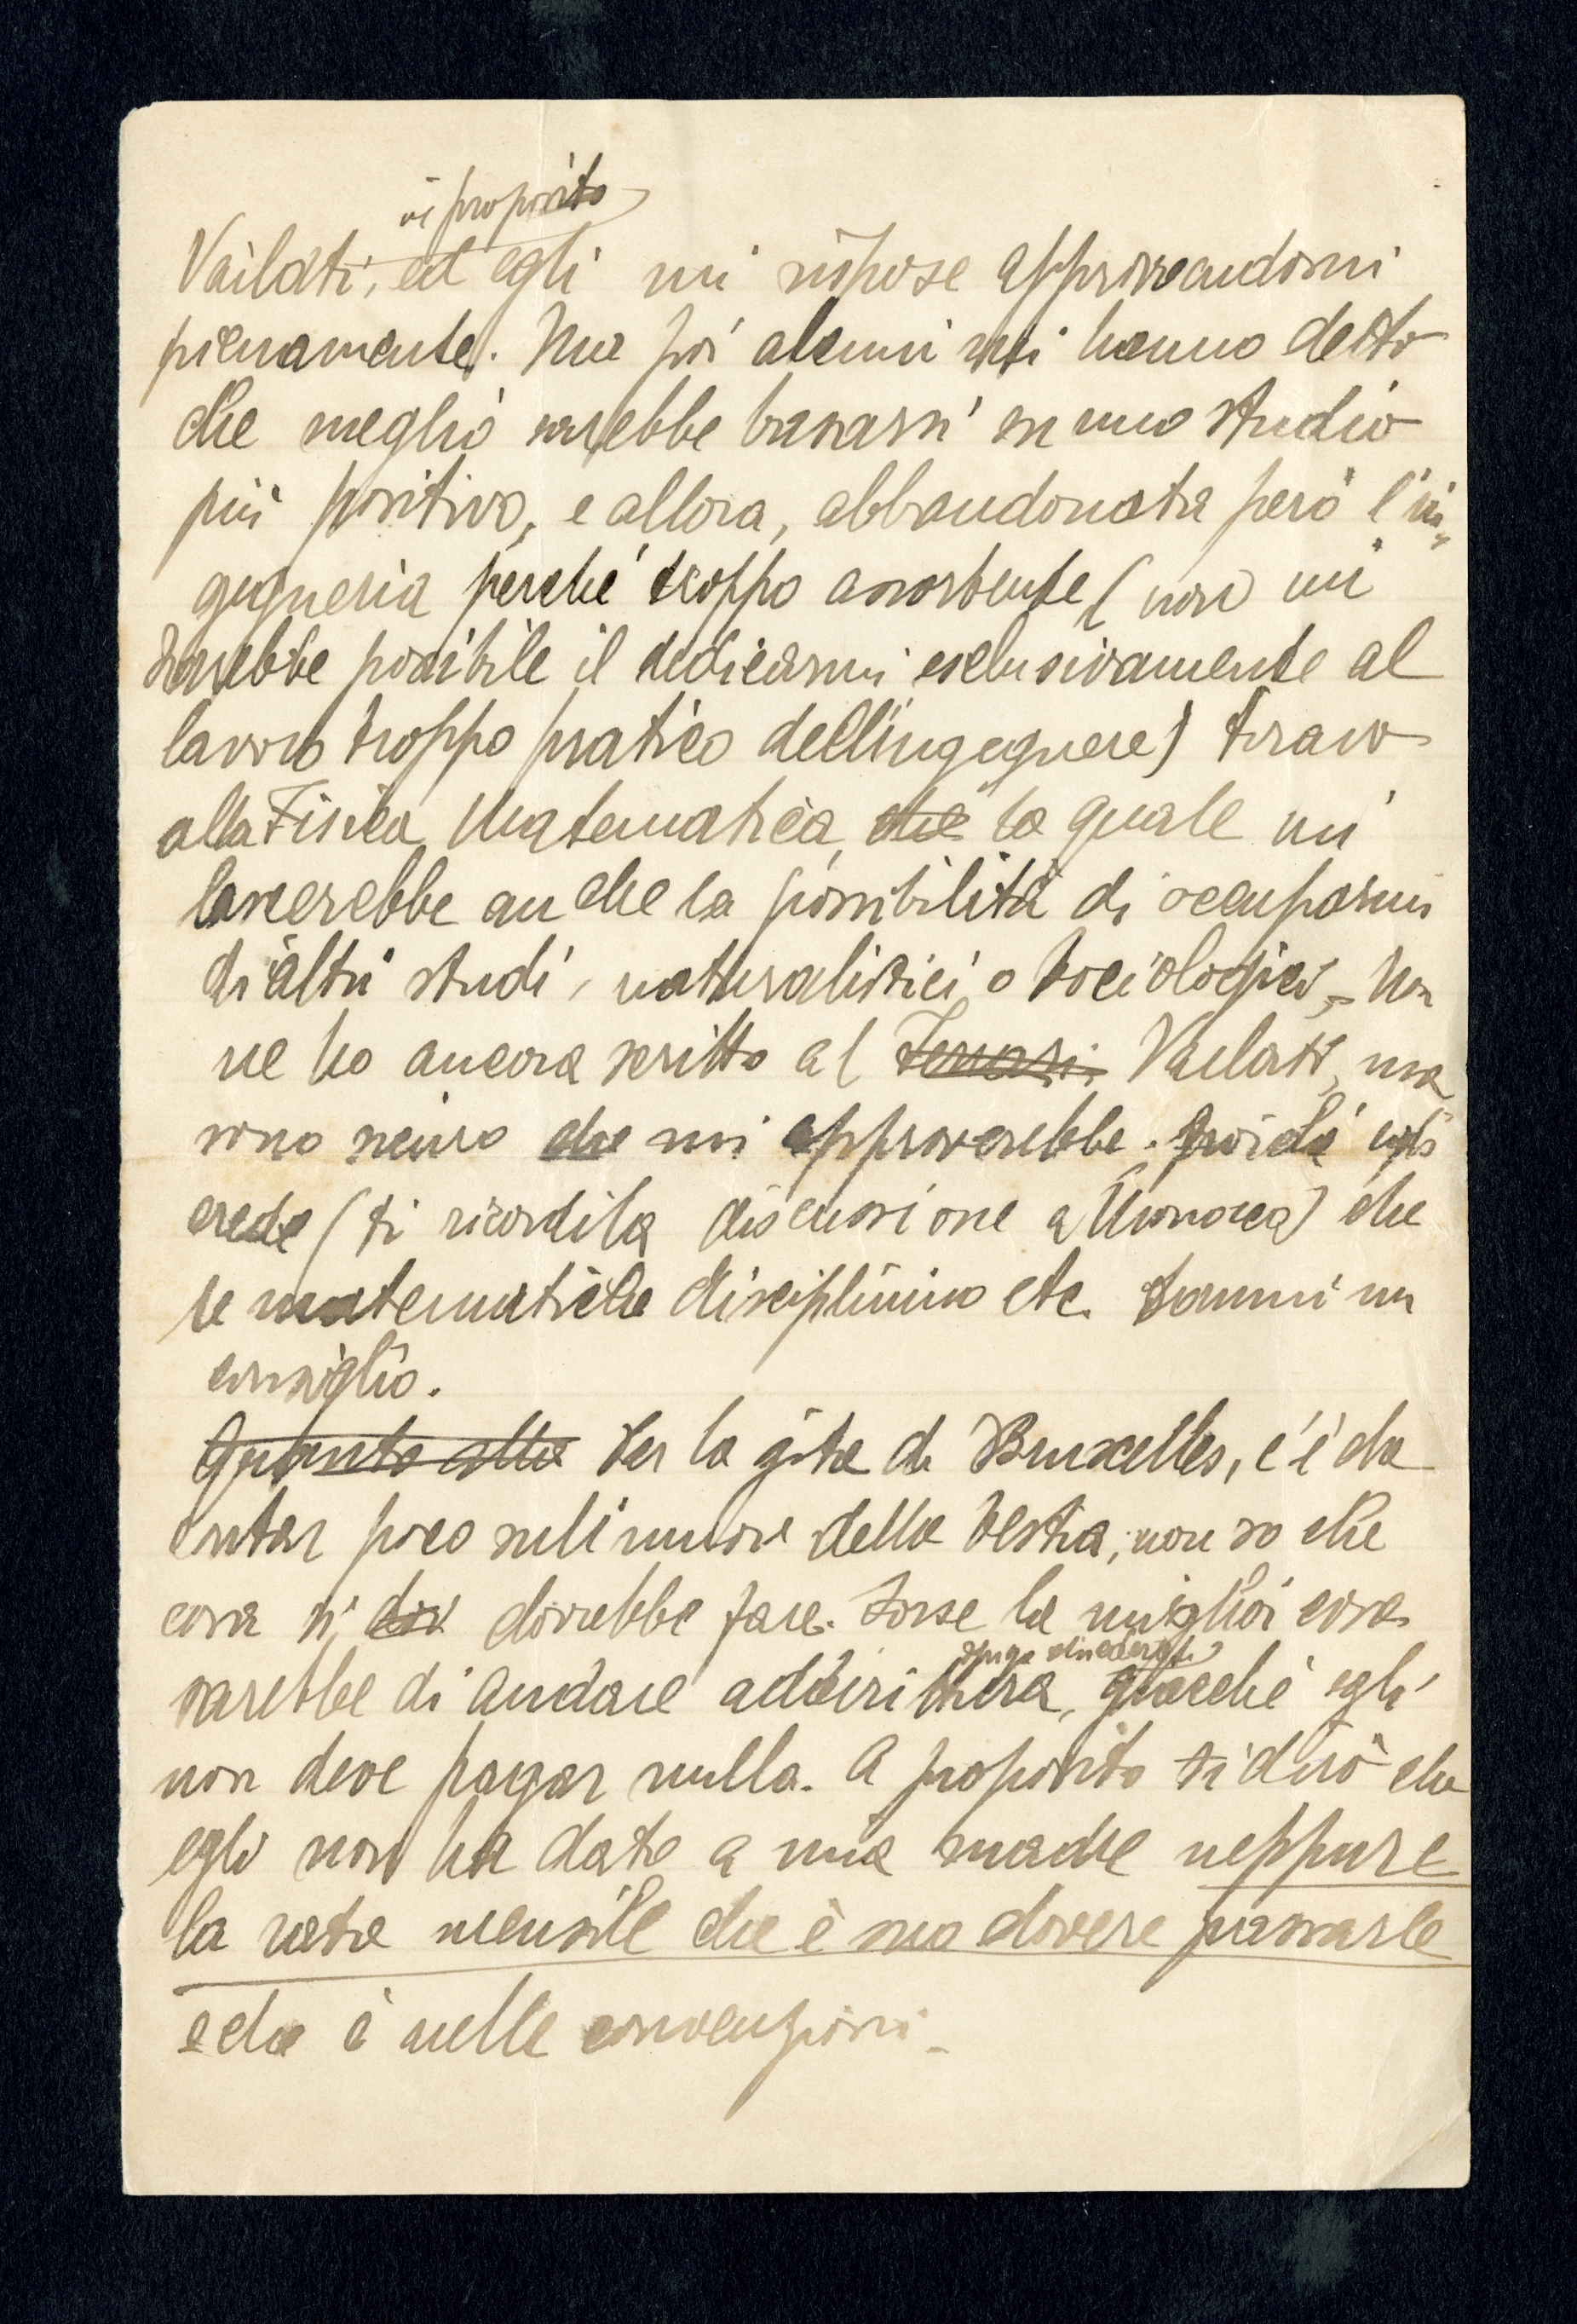 in proposito
Vailati, ed egli mi rispose approvandomi
pienamente. Ma poi alcuni mi hanno detto
che meglio sarebbe basarsi su uno studio
più positivo, e allora, abbandonata però l'in-
gegneria perché troppo assorbente (non mi
sarebbe possibile il dedicarmi esclusivamente al
lavoro troppo pratico dell'ingegnere)
alla Fisica Matematica, che la quale mi
lascerebbe anche la possibilità di occuparmi
di altri studi, naturalistici o sociologici. Non
ne ho ancora scritto al Ferrari Vailati, ma
sono sicuro che mi approverebbe. Poiché egli
crede (ti ricordi la discussione a Monaco) che
le matematiche disciplinino etc. Dammi un
consiglio.
Quanto alla Per la gita di Bruxelles, c'è da
contar poco sull'umore della bestia, non so che
cosa si dov dovrebbe fare. Forse la miglior cosa
senza chiedergli
sarebbe di andare addirittura, giacché egli
non deve pagar nulla. A proposito ti dirò che
egli non ha dato a mia madre neppure
la rata mensile che è suo dovere passarle
e che è nelle convenzioni.